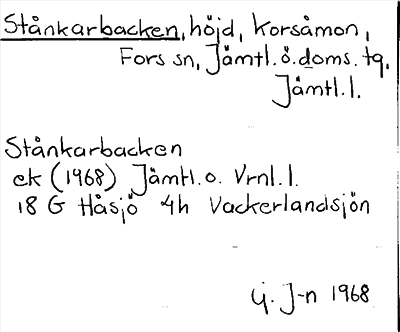 Stånkarbacken, höjd, Korsåmon,
Fors sn, Jämtl. ö. doms. tg,
Jämtl. l.
Stånkarbacken
ek (1968) Jämtl. o. Vrnl. l.
18 G Håsjö 4h Vackerlandsjön
G. J-n 1968